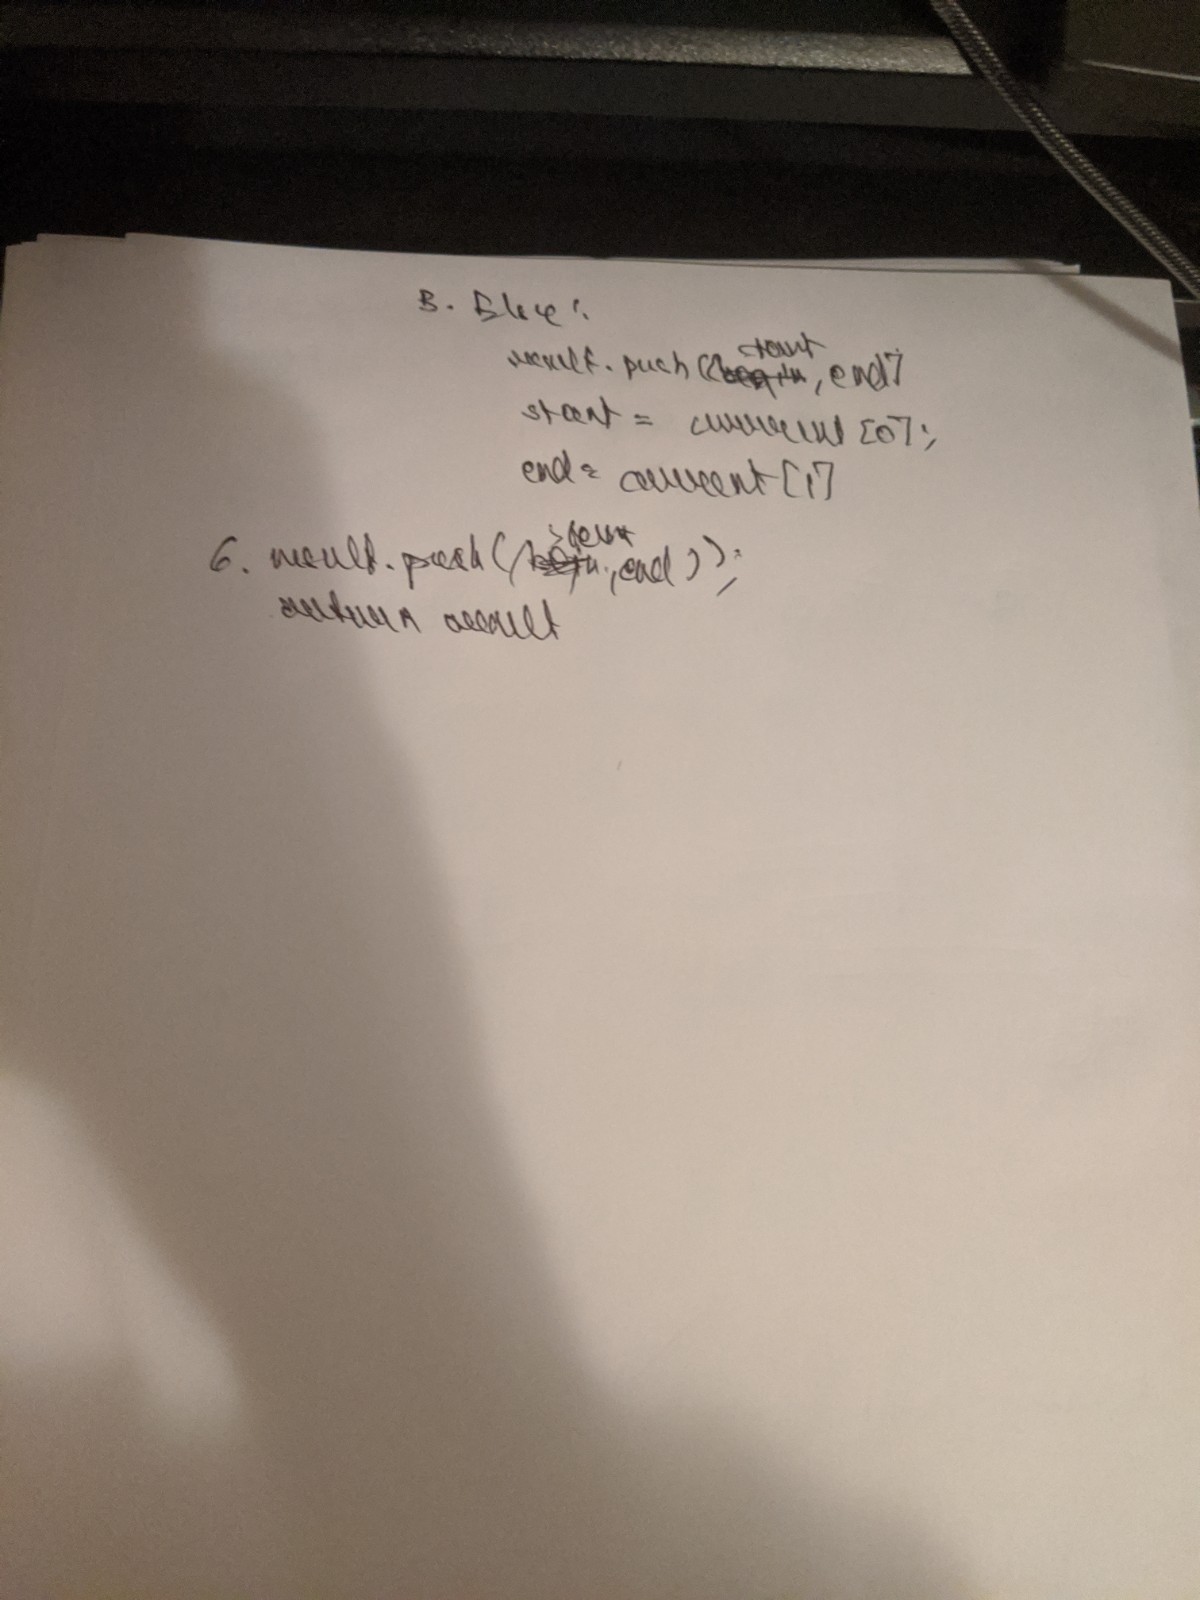 B. Else:
result.push([start, end]
start = current [0];
end = current [1]
6. result.push([start, end]);
return result